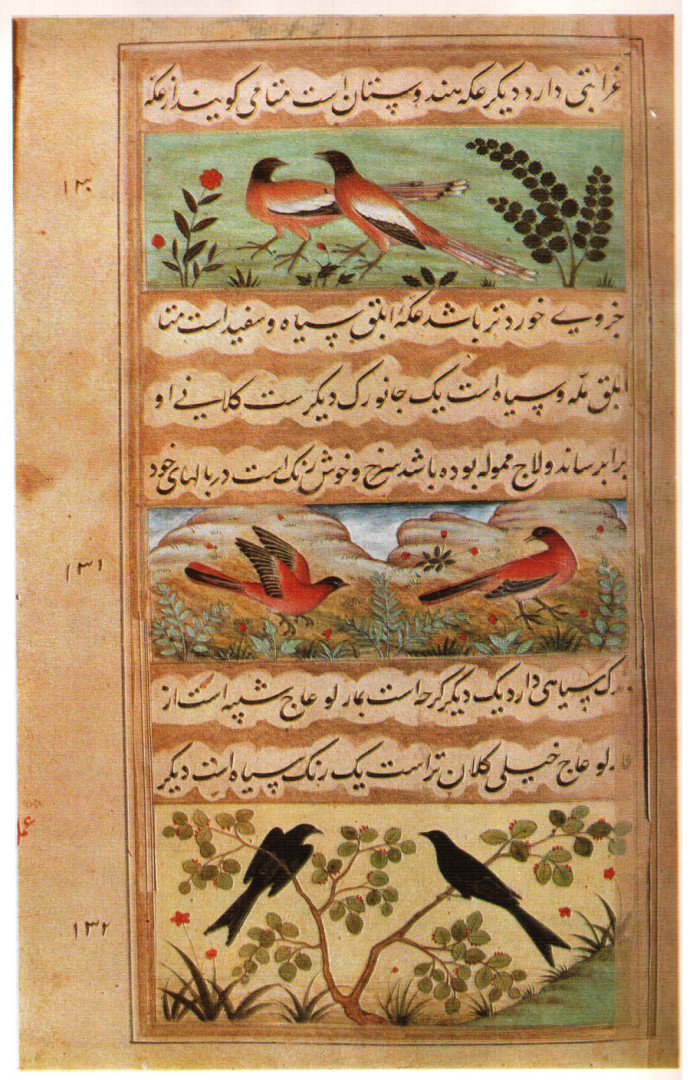 غرابتی دارد دیگر عکه هندوستان است متا می کویند از عکه
۱۳۰
جزویے خوردتر باشد عکهٔ ابلق سیاه و سفید است متا
ابلق مله و سیاه است یک جانورک دیکرست کلانے او
برابر ساندولاج مموله بوده باشد سرخ و خوش رنک است در بالهای خود
۱۳۱
سیاهی دارد یک دیکر کرجه است بمارلوعاج شبیه است از
لوعاج خیلی کلان تر است یک رنک سیاه است دیکر
عمل
۱۳۲